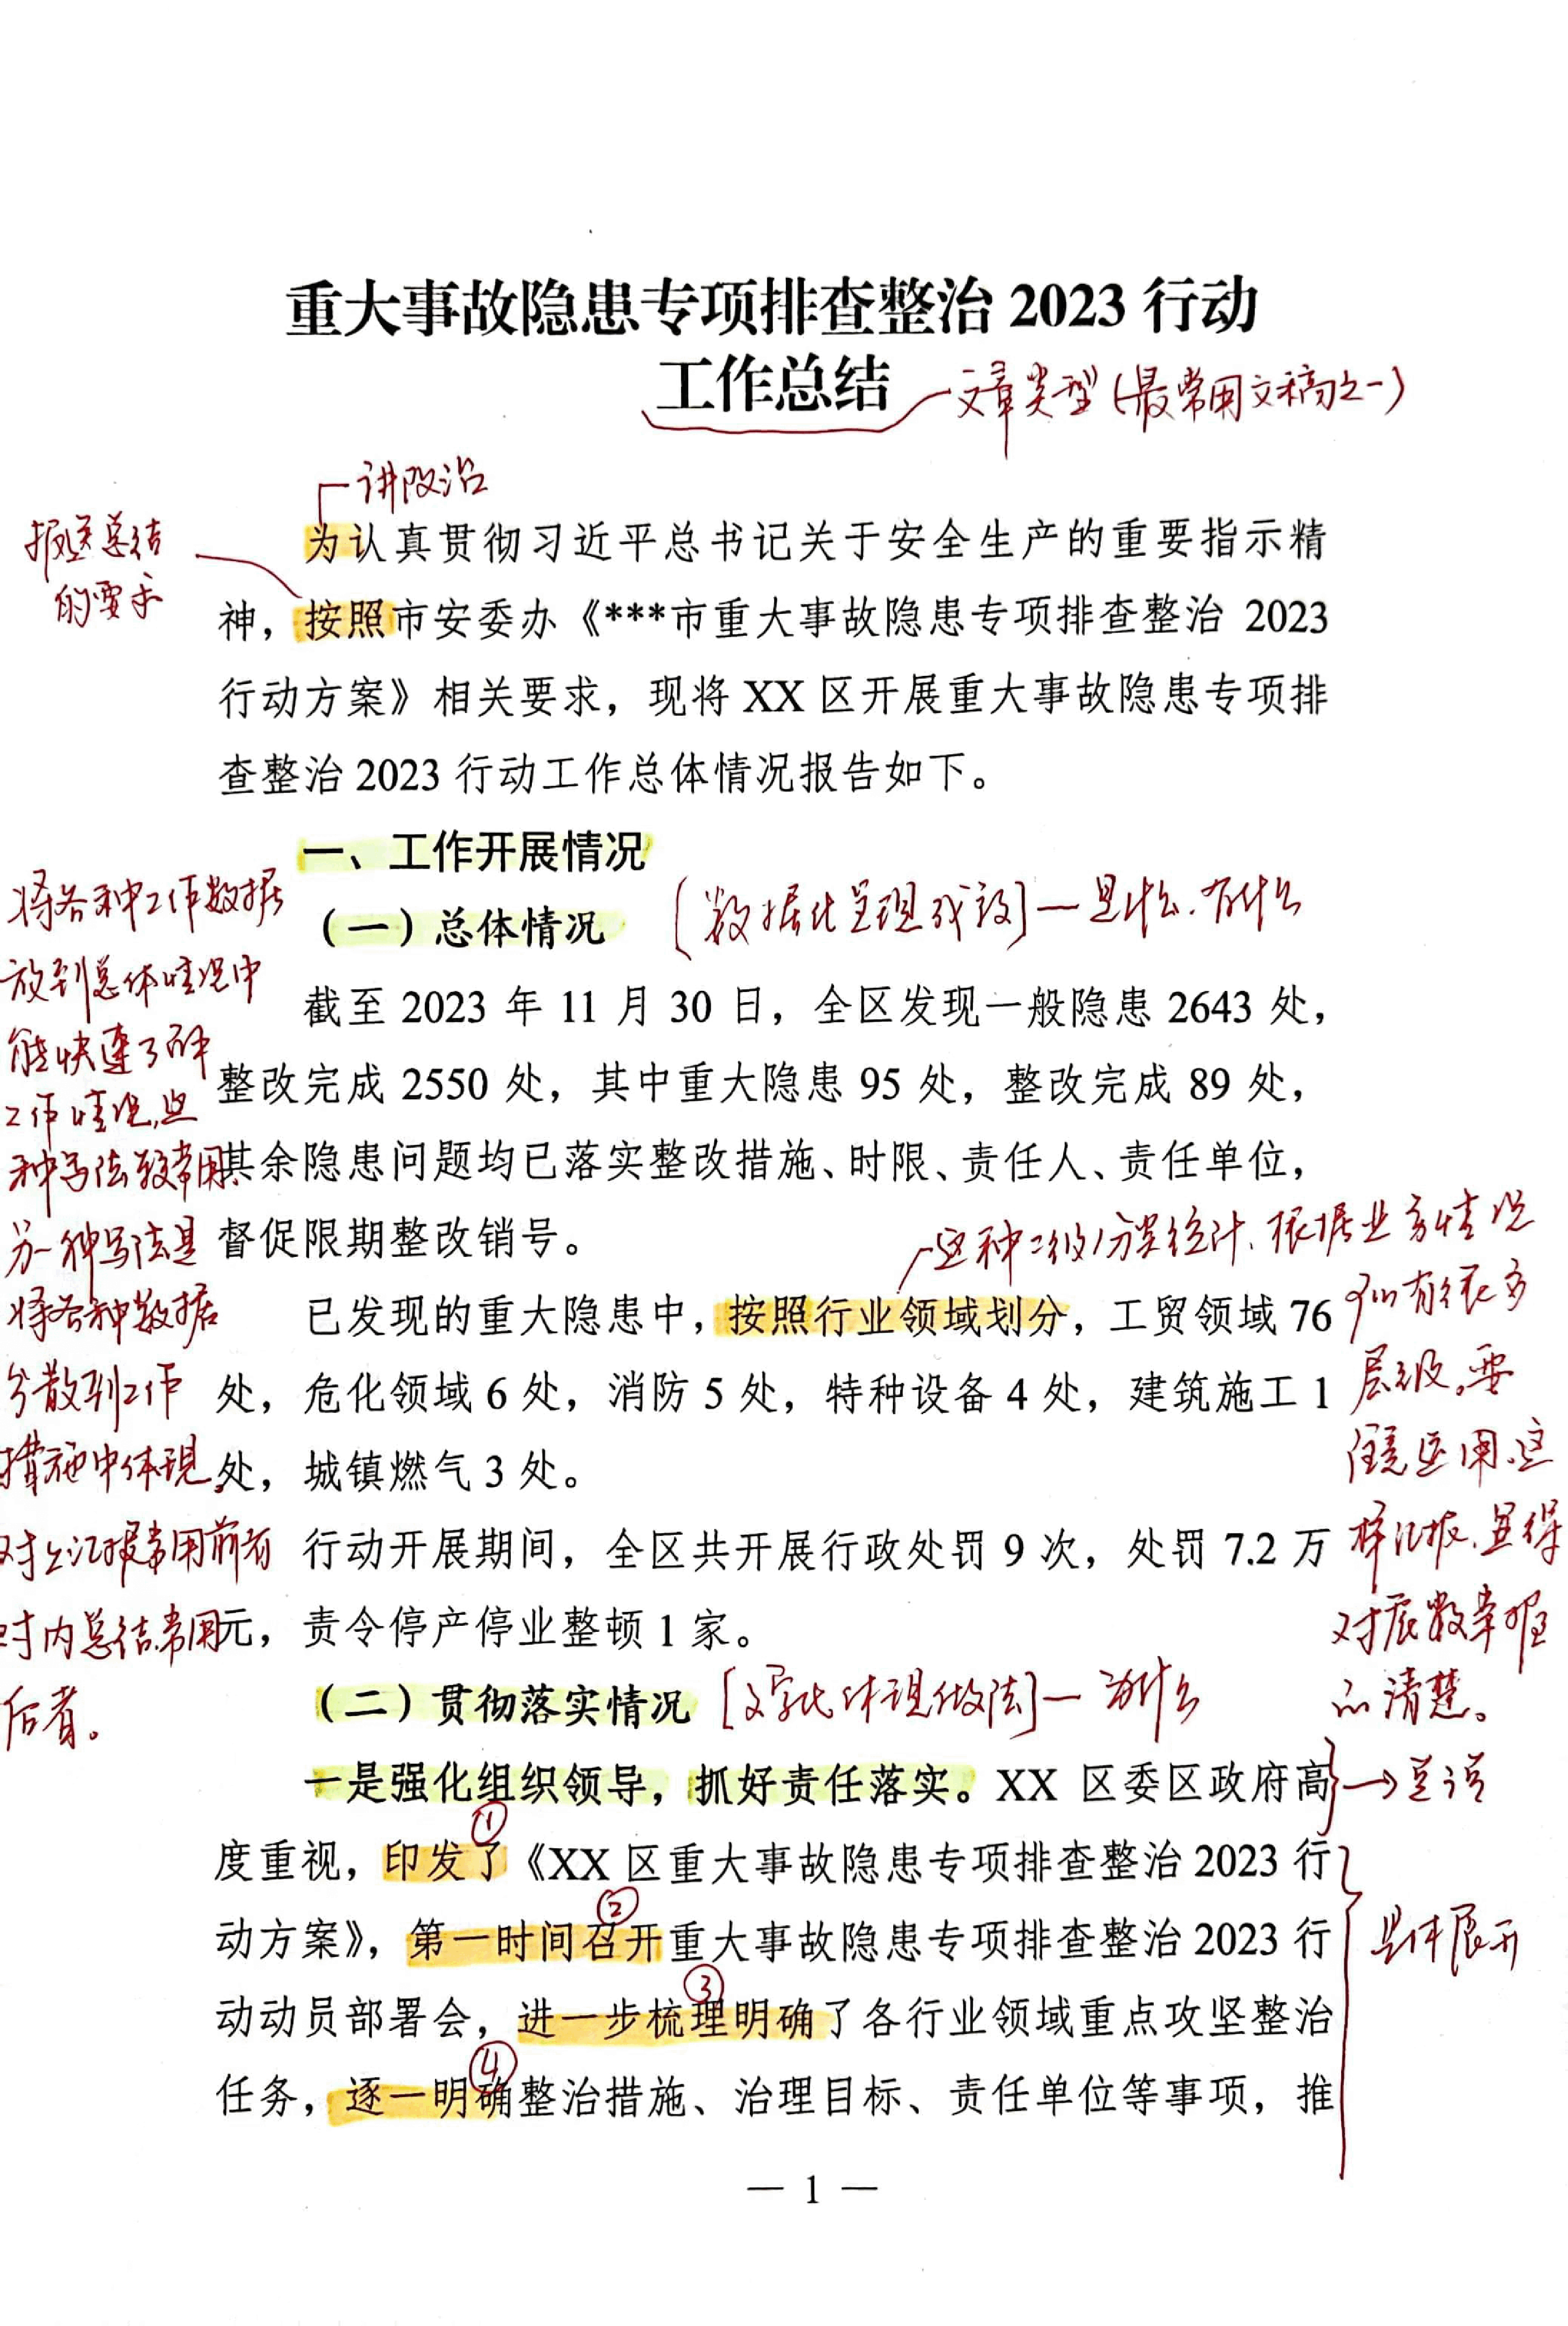 重大事故隐患专项排查整治 2023 行动
工作总结
文章类型（最常用文稿之一）
讲政治
报送总结
的要求
为认真贯彻习近平总书记关于安全生产的重要指示精
神，按照市安委办《***市重大事故隐患专项排查整治 2023
行动方案》相关要求，现将 XX 区开展重大事故隐患专项排
查整治 2023 行动工作总体情况报告如下。
一、工作开展情况
（一）总体情况
[数据化呈现成效]—是什么、有什么
将各种工作数据
放到总体情况中
能快速了解
工作情况，这
种写法较常用，
另一种写法是
将各种数据
分散到工作
措施中体现，
对上汇报常用前者
对内总结常用
后者。
截至 2023 年 11 月 30 日，全区发现一般隐患 2643 处，
整改完成 2550 处，其中重大隐患 95 处，整改完成 89 处，
其余隐患问题均已落实整改措施、时限、责任人、责任单位，
督促限期整改销号。
这种二级分类统计、根据业务情况
可以有很多
层级，要
注意运用，这
样汇报，显得
对底数掌握
的清楚。
已发现的重大隐患中，按照行业领域划分，工贸领域 76
处，危化领域 6 处，消防 5 处，特种设备 4 处，建筑施工 1
处，城镇燃气 3 处。
行动开展期间，全区共开展行政处罚 9 次，处罚 7.2 万
元，责令停产停业整顿 1 家。
（二）贯彻落实情况
[文字化体现做法]—做什么
一是强化组织领导，抓好责任落实。XX 区委区政府高
总说
①
度重视，印发了《XX 区重大事故隐患专项排查整治 2023 行
②
动方案》，第一时间召开重大事故隐患专项排查整治 2023 行
具体展开
③
动动员部署会，进一步梳理明确了各行业领域重点攻坚整治
④
任务，逐一明确整治措施、治理目标、责任单位等事项，推
— 1 —